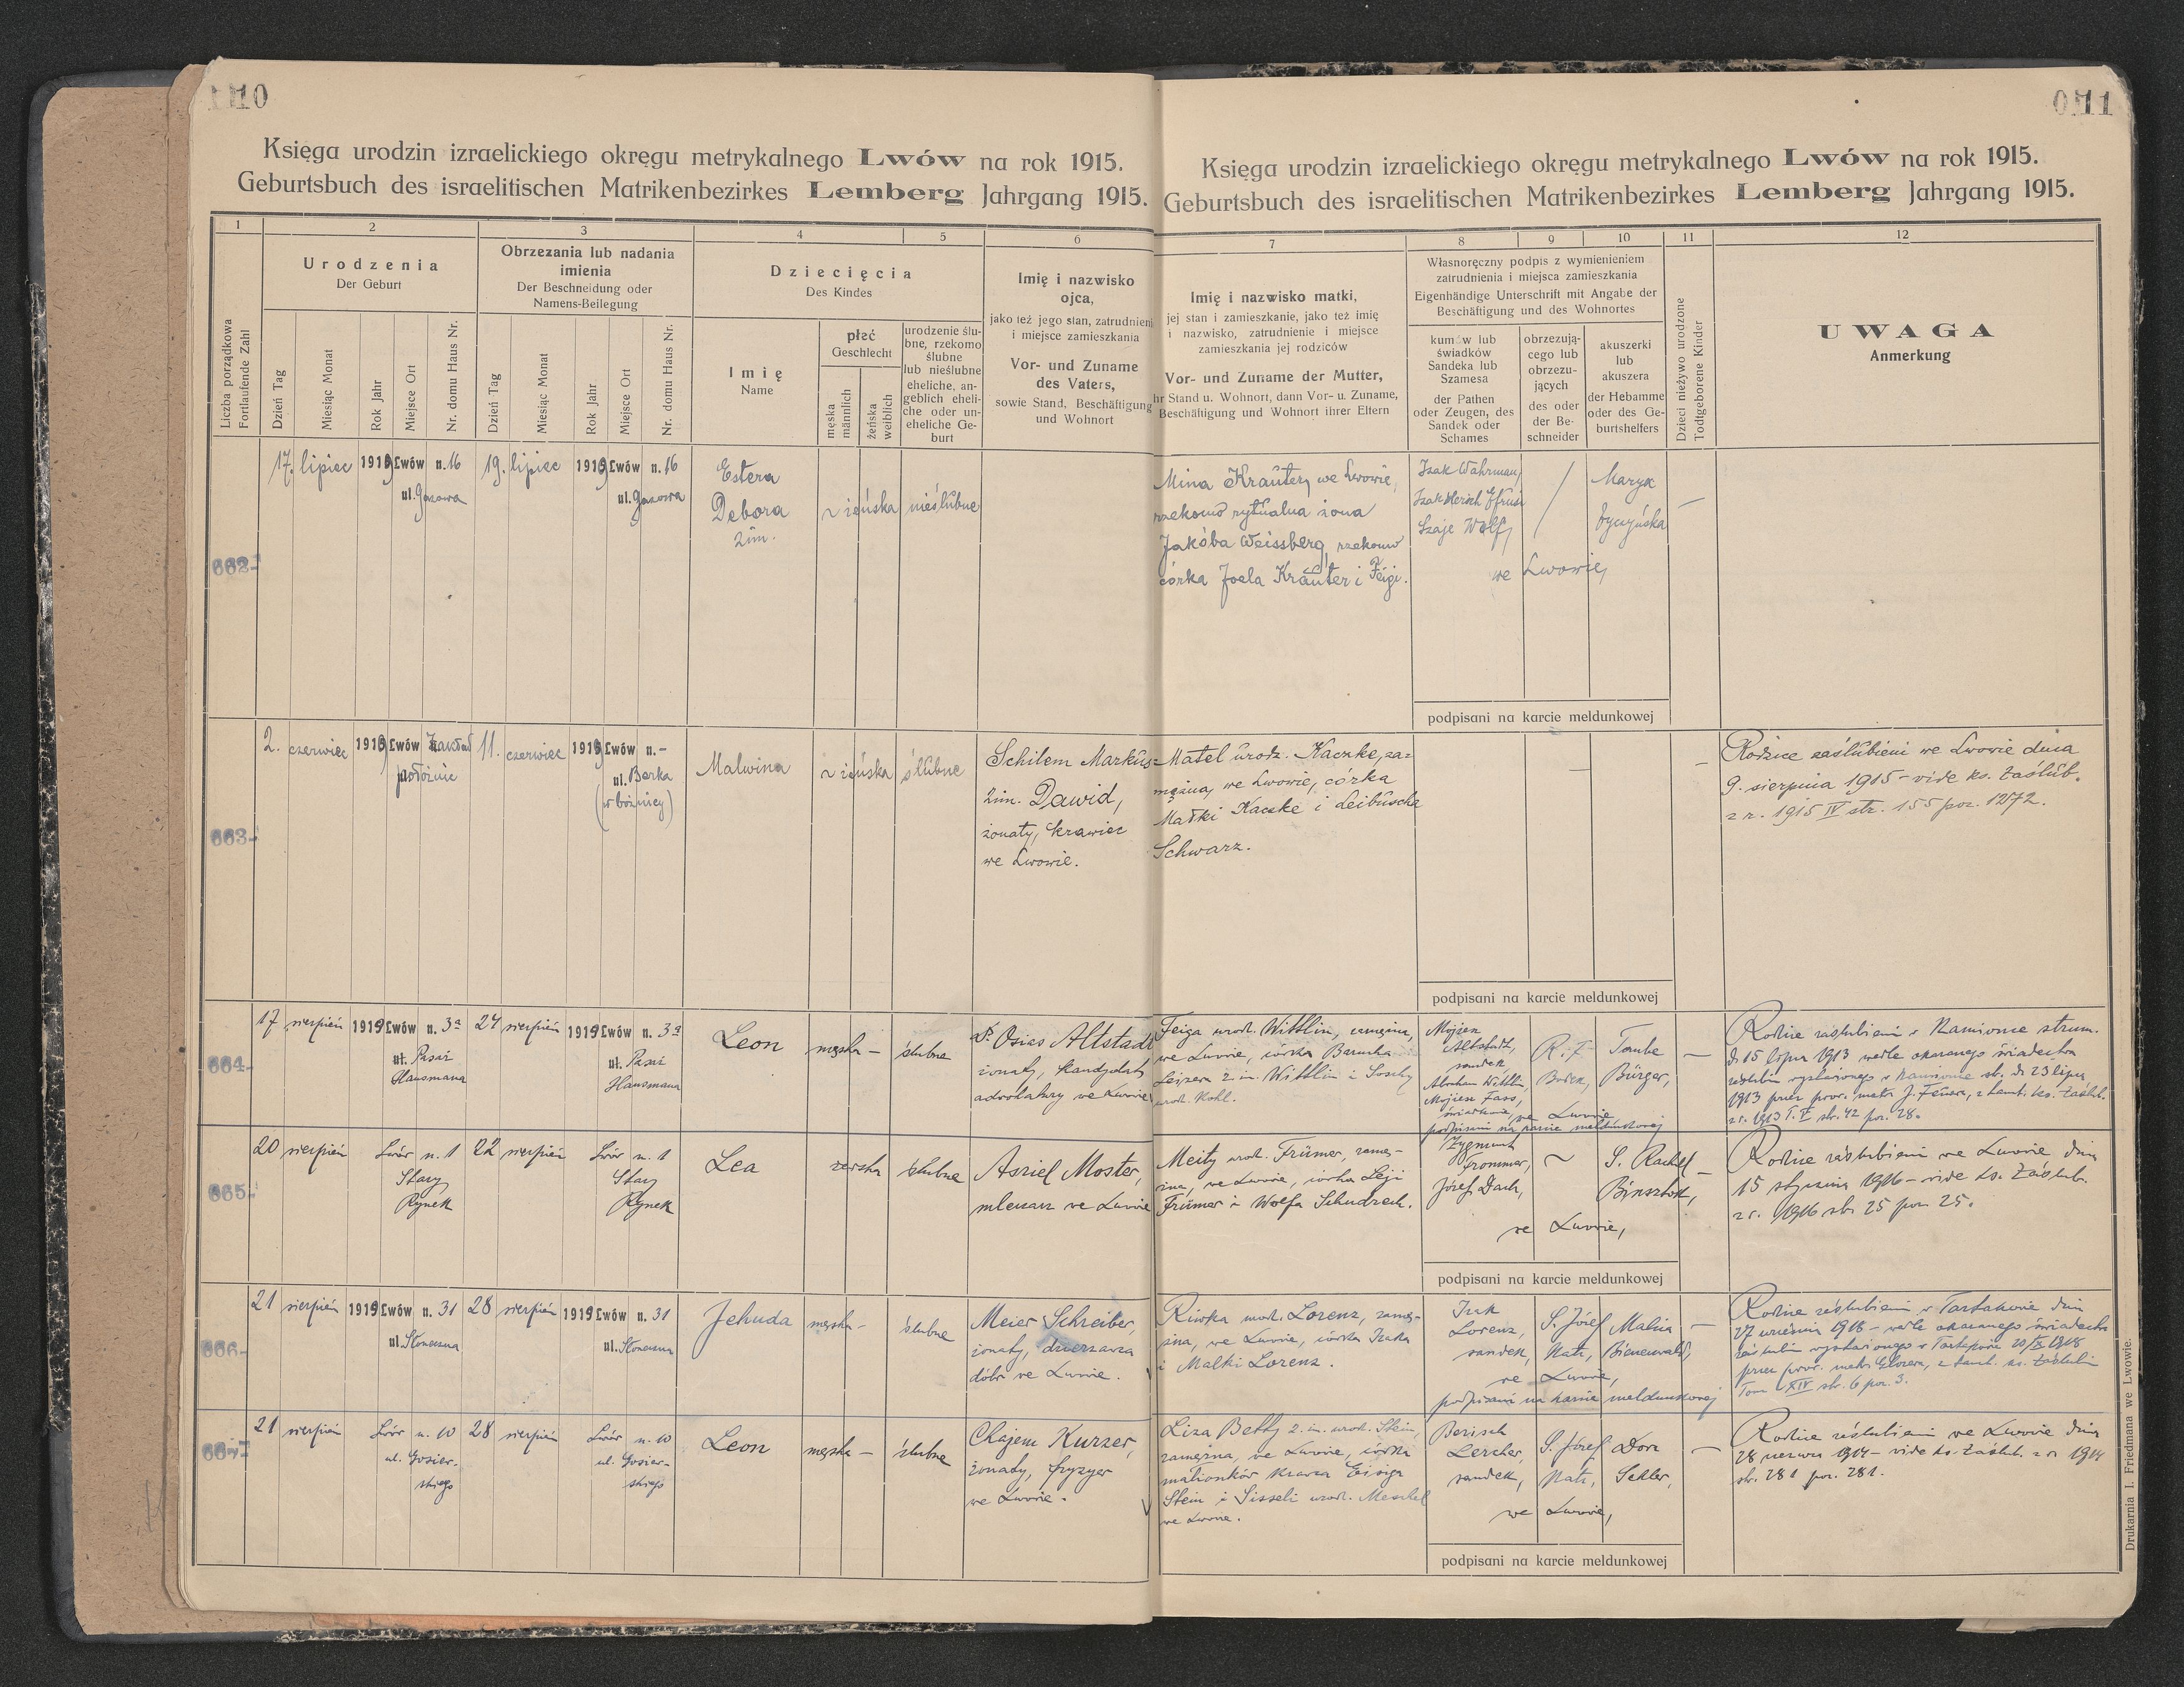 10
Księga urodzin izraelickiego okręgu metrykalnego Lwów na rok 1915.
Geburtsbuch des israelitischen Matrikenbezirkes Lemberg Jahrgang 1915.
1 2 3 4 5 6
Liczba porządkowa
Fortlaufende Zahl
Urodzenia
Der Geburt
Dzień Tag
Miesiąc Monat
Rok Jahr
Miejsce Ort
Nr. domu Haus Nr.
Obrzezania lub nadania
imienia
Der Beschneidung oder
Namens-Beilegung
Dzień Tag
Miesiąc Monat
Rok Jahr
Miejsce Ort
Nr. domu Haus Nr.
Dziecięcia
Des Kindes
Imię
Name
płeć
Geschlecht
męska
männlich
żeńska
weiblich
urodzenie ślu-
bne, rzekomo
ślubne
lub nieślubne
eheliche, an-
geblich eheli-
che oder un-
eheliche Ge-
burt
Imię i nazwisko
ojca,
jako też jego stan, zatrudnieni
i miejsce zamieszkania
Vor- und Zuname
des Vaters,
sowie Stand, Beschäftigung
und Wohnort
662
17. lipiec 1919 Lwów n. 16
ul. Gazowa
19. lipiec 1919 Lwów n. 16
ul. Gazowa
Estera
Debora
2 im.
żeńska
nieślubne
663
2. czerwiec 1919 Lwów Zakład
położnic
11. czerwiec 1919 Lwów n. -
ul. Berka
(w bóżnicy)
Malwina
żeńska
ślubne
Schilem Markus
2 im. Dawid,
żonaty, krawiec
we Lwowie.
664
17 sierpień 1919 Lwów n. 3a
ul. Pasaż
Hausmana
24 sierpień 1919 Lwów n. 3a
ul. Pasaż
Hausmana
Leon
męska —
ślubne
Dr. Osias Altstadt
żonaty, kandydat
adwokatury we Lwowie
665
20 sierpień Lwów n. 1
Stary
Rynek
22 sierpień Lwów n. 1
Stary
Rynek
Lea
żeńska
ślubne
Asriel Moster,
mleczarz we Lwowie
666
21 sierpień 1919 Lwów n. 31
ul. Słoneczna
28 sierpień 1919 Lwów n. 31
ul. Słoneczna
Jehuda
męska —
ślubne
Meier Schreiber,
żonaty, dzierżawca
dóbr we Lwowie.
667
21 sierpień Lwów n. 10
ul. Gosiew-
skiego
28 sierpień Lwów n. 10
ul. Gosiew-
skiego
Leon
męska —
ślubne
Chajem Kurzer,
żonaty, fryzyer
we Lwowie.
11
Księga urodzin izraelickiego okręgu metrykalnego Lwów na rok 1915.
Geburtsbuch des israelitischen Matrikenbezirkes Lemberg Jahrgang 1915.
7 8 9 10 11 12
Imię i nazwisko matki,
jej stan i zamieszkanie, jako też imię
i nazwisko, zatrudnienie i miejsce
zamieszkania jej rodziców
Vor- und Zuname der Mutter,
ihr Stand u. Wohnort, dann Vor- u. Zuname,
Beschäftigung und Wohnort ihrer Eltern
Własnoręczny podpis z wymienieniem
zatrudnienia i miejsca zamieszkania
Eigenhändige Unterschrift mit Angabe der
Beschäftigung und des Wohnortes
kumów lub
świadków
Sandeka lub
Szamesa
der Pathen
oder Zeugen, des
Sandek oder
Schames
obrzezują-
cego lub
obrzezu-
jących
des oder
der Be-
schneider
akuszerki
lub
akuszera
der Hebamme
oder des Ge-
burtshelfers
Dzieci nieżywo urodzone
Todtgeborene Kinder
UWAGA
Anmerkung
Mina Kräuter, we Lwowie,
rzekomo rytualna żona
Jakóba Weissberg, rzekomo
córka Joela Kräuter i Feigi.
Izak Wahrman,
Izak Hersch
Szaje Wolf,
Marya
we Lwowie,
podpisani na karcie meldunkowej
Matel urodz. Kaczke, za-
mężna, we Lwowie, córka
Małki Kaczke i Leibuscha
Schwarz.
podpisani na karcie meldunkowej
Rodzice zaślubieni we Lwowie dnia
9. sierpnia 1915 – vide ks. zaślub.
z r. 1915 IV str. 155 poz. 1272.
Feiga urodz. Wittlin, zamężna,
we Lwowie, córka Barucha
Leisera 2 im. Wittlin i Soschy
urodz. Kohl.
Mojżesz
Altstadt,
sandek,
Abraham Wittlin,
Mojżesz Fass,
świadkowie, we Lwowie
podpisani na karcie meldunkowej
Taube
Bürger,
Rodzice zaślubieni w Kamionce strum.
d. 15 lipca 1913 wedle okazanego świadectwa
zaślubin wystawionego w Kamionce str. d. 23 lipca
1913 przez prow. metr. J. Feuera, z tamt. ks. zaślub.
z r. 1913 T. V str. 42 poz. 28.
Meity urodz. Frümer, zamęż-
żna, we Lwowie, córka Leji
Frümer i Wolfa Schudrech.
Zygmunt
Frommer,
Józef Dach,
S. Rachel
Binsztok,
we Lwowie,
podpisani na karcie meldunkowej
Rodzice zaślubieni we Lwowie dnia
15 stycznia 1916 – vide ks. zaślub.
z r. 1916 str. 25 poz. 25.
Riwka urodz. Lorenz, zamęż-
żna, we Lwowie, córka Izaka
i Malki Lorenz.
Izak
Lorenz,
sandek,
S. Józef
Katz,
Malcia
Bienenwald,
we Lwowie,
podpisani na karcie meldunkowej
Rodzice zaślubieni w Tartakowie dnia
27 września 1918 – wedle okazanego świadectwa
zaślubin wystawionego w Tartakowie 20/IX 1918
Tom XIV str. 6 poz. 3.
Liza Betty 2 im. urodz. Stein,
zamężna, we Lwowie, córka
małżonków krawca Eisiga
Stein i Sisseli urodz. Meschel
we Lwowie.
Berisch
Lercher,
sandek,
S. Józef
Katz,
Dora
Sekler,
we Lwowie,
podpisani na karcie meldunkowej
Rodzice zaślubieni we Lwowie dnia
28 czerwca 1914 – vide ks. zaślub. z r. 1914
str. 281 poz. 281.
Drukarnia I. Friedmana we Lwowie.